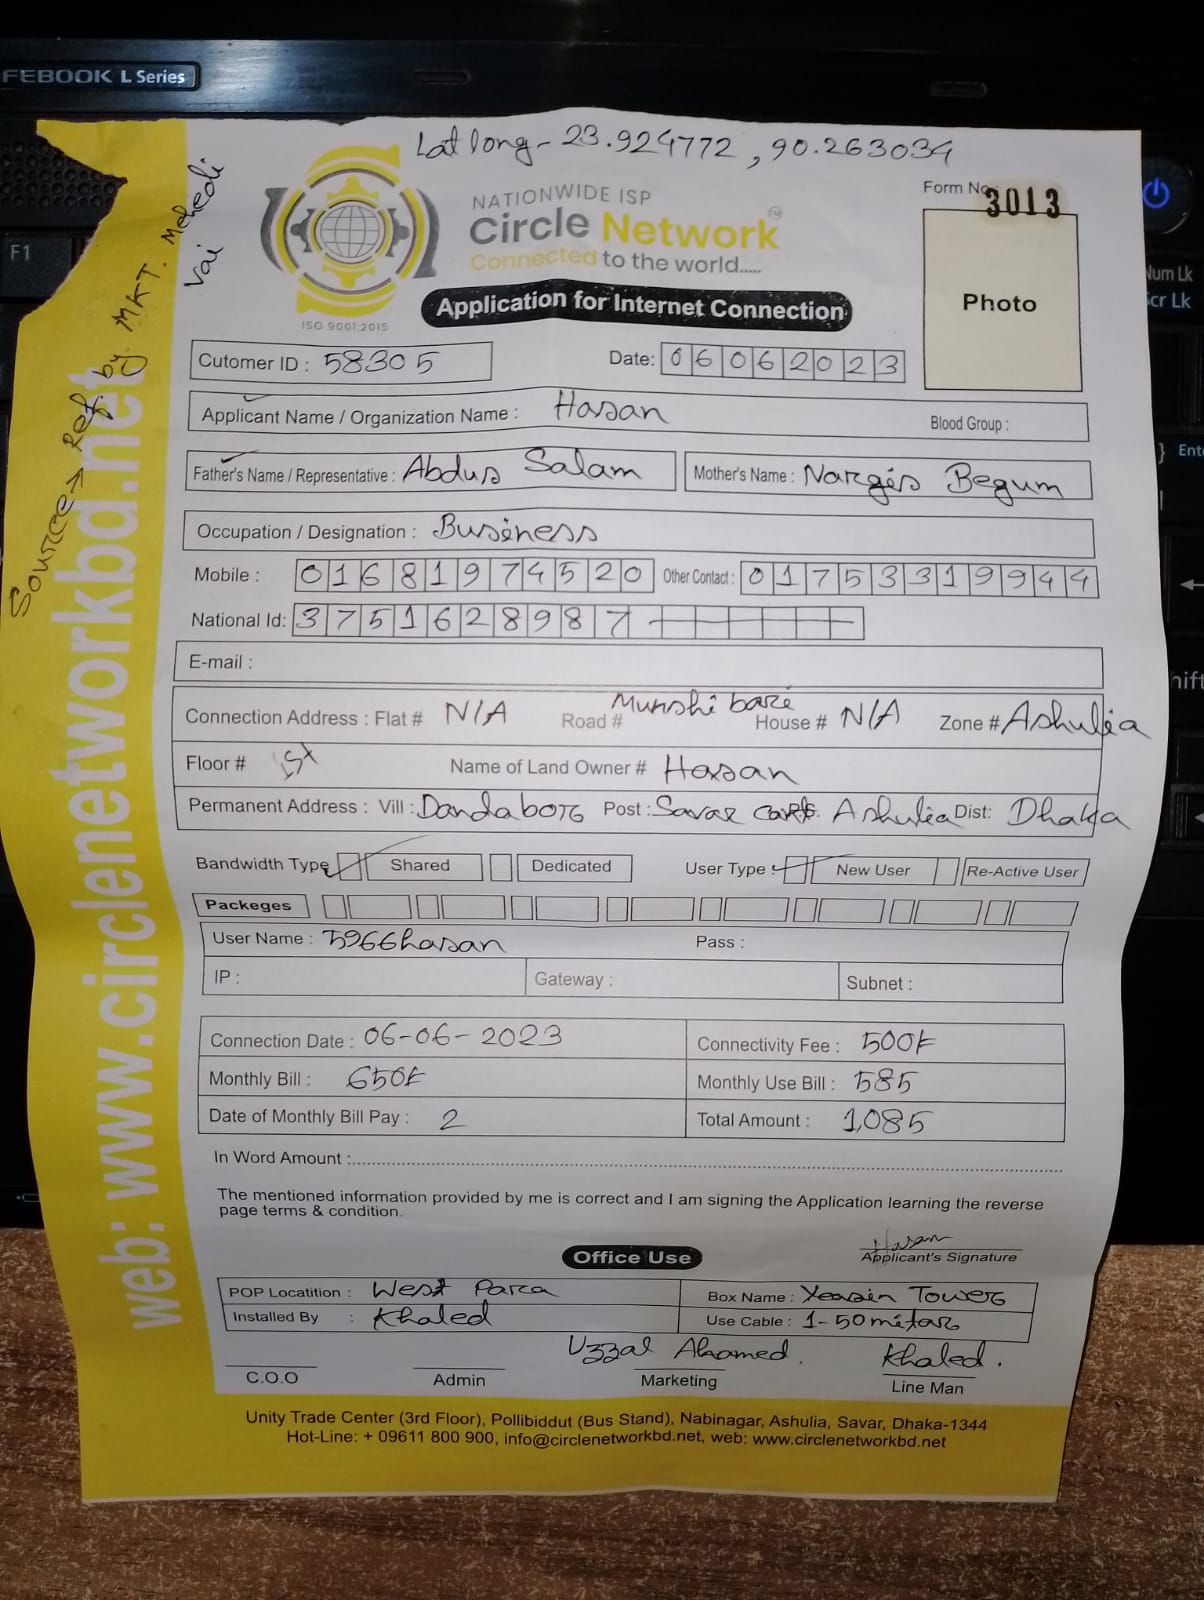 FEBOOK L Series
Lat long - 23.924772, 90.263034
NATIONWIDE ISP
Circle Network
Connected to the world.....
ISO 9001:2015
Form No. 3013
Photo
Application for Internet Connection
Source → Ref. by. MKT. Mehedi Vai
web: www.circlenetworkbd.net
Cutomer ID : 58305 Date: 06062023
Applicant Name / Organization Name : Hasan Blood Group :
Father's Name / Representative : Abdus Salam Mother's Name : Nargis Begum
Occupation / Designation : Business
Mobile : 01681974520 Other Contact : 01753319944
National Id: 3751628987
E-mail :
Connection Address : Flat # N/A Road # Munshi bari House # N/A Zone # Ashulia
Floor # 1st Name of Land Owner # Hasan
Permanent Address : Vill : Dandabor Post : Savar Ashulia Dist: Dhaka
Bandwidth Type Shared Dedicated User Type New User Re-Active User
Packeges
User Name : 5966hasan Pass :
IP : Gateway : Subnet :
Connection Date : 06-06-2023 Connectivity Fee : 500/-
Monthly Bill : 650/- Monthly Use Bill : 585
Date of Monthly Bill Pay : 2 Total Amount : 1,085
In Word Amount :
The mentioned information provided by me is correct and I am signing the Application learning the reverse
page terms & condition.
Hasan
Applicant's Signature
Office Use
POP Locatition : West Para Box Name : Yeasin Tower
Installed By : Khaled Use Cable : 1-50 mitar
Uzzal Ahamed. Khaled.
C.O.O Admin Marketing Line Man
Unity Trade Center (3rd Floor), Pollibiddut (Bus Stand), Nabinagar, Ashulia, Savar, Dhaka-1344
Hot-Line: + 09611 800 900, info@circlenetworkbd.net, web: www.circlenetworkbd.net
F1
Num Lk
Scr Lk